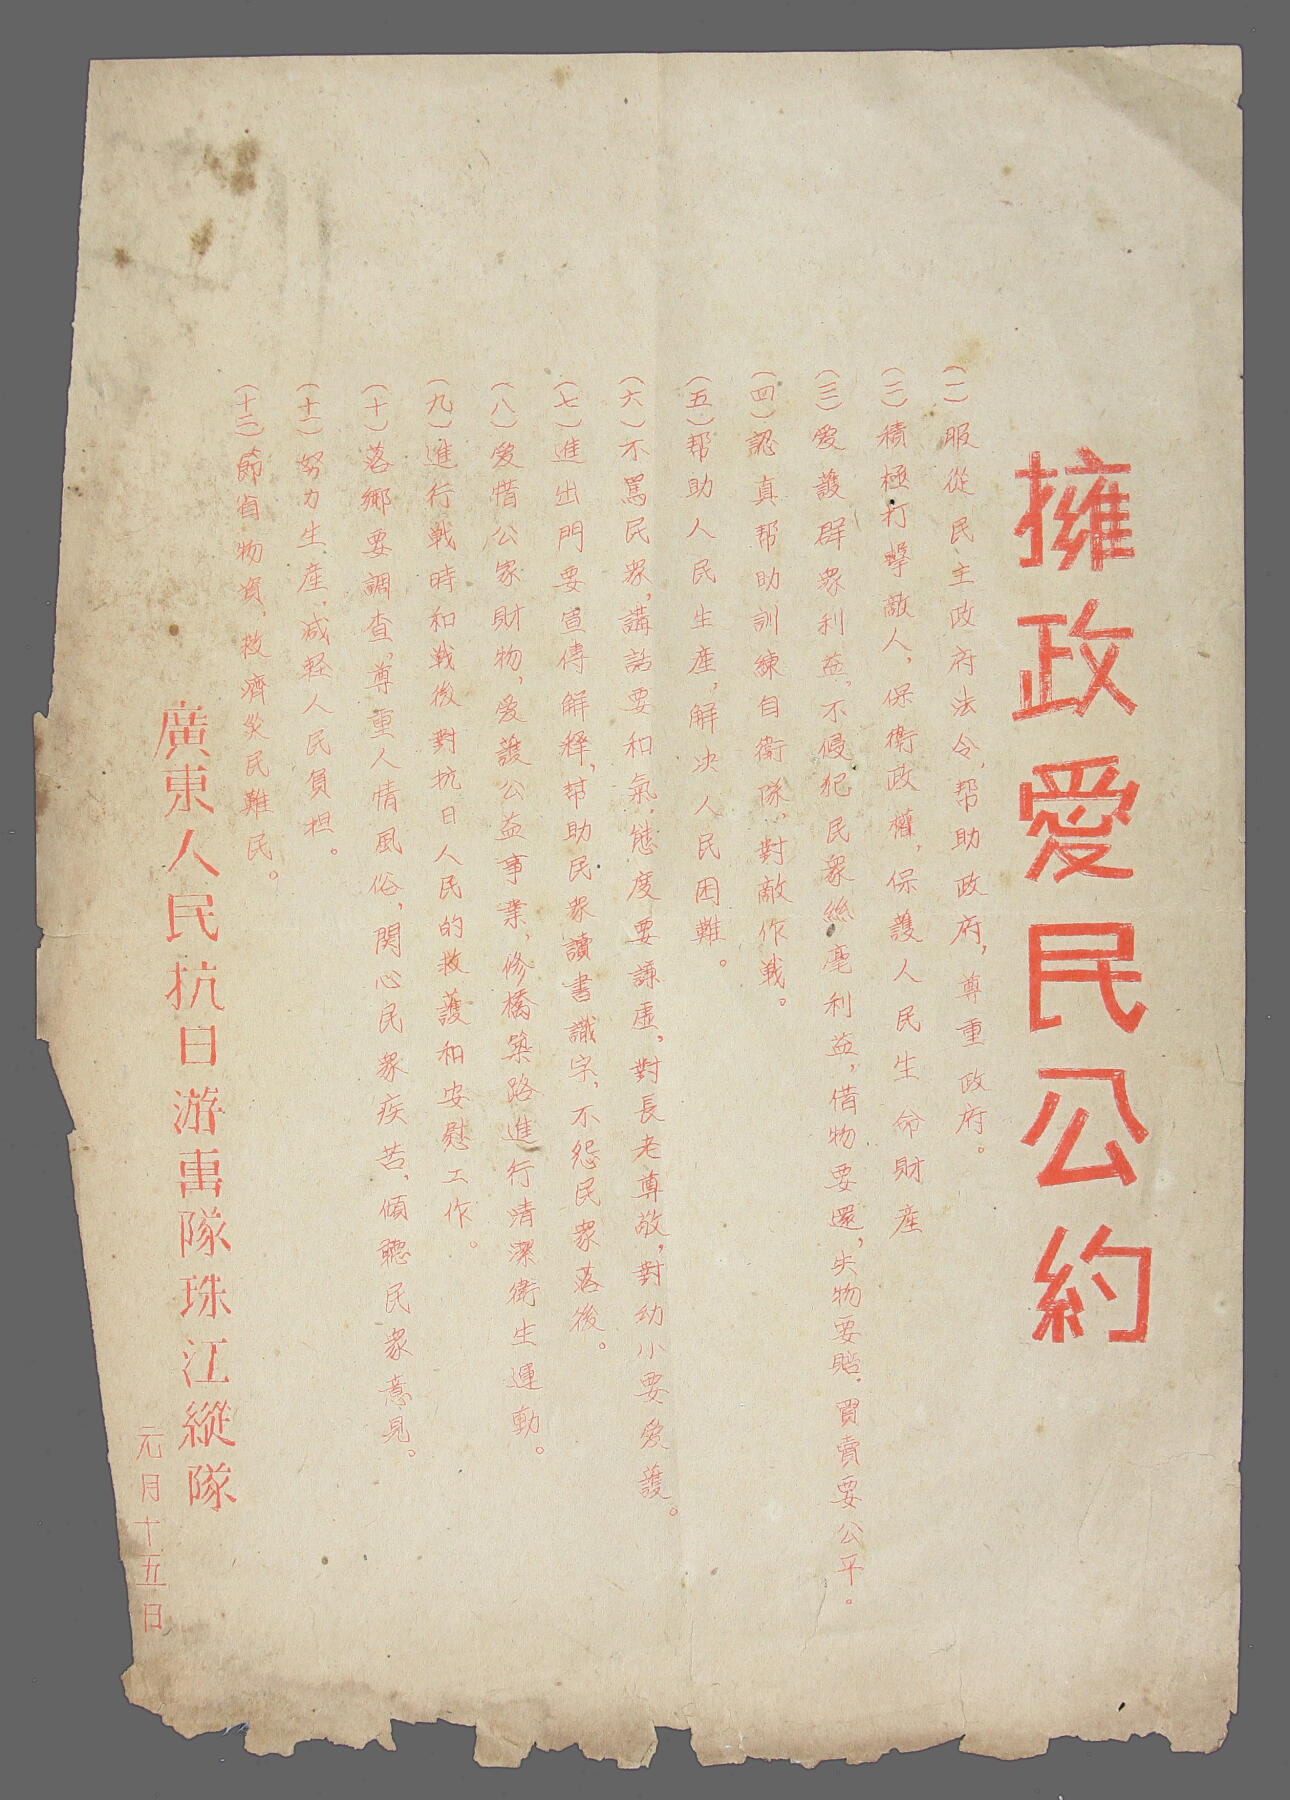 擁政愛民公約
(一)服從民主政府法令,帮助政府,尊重政府。
(二)積極打擊敵人,保衛政權,保護人民生命財産
(三)愛護群衆利益,不侵犯民衆絲毫利益,借物要還,失物要賠.買賣要公平。
(四)認真帮助訓練自衛隊,對敵作戰。
(五)帮助人民生產,解决人民困難。
(六)不罵民衆,講話要和氣,態度要謙虛,對長老尊敬,對幼小要愛護。
(七)進出門要宣傳解釋,帮助民衆讀書識字,不怨民衆落後。
(八)愛惜公家財物,愛護公益事業,修橋築路進行清潔衛生運動。
(九)進行戰時和戰後對抗日人民的救護和安慰工作。
(十)落鄉要調查,尊重人情風俗,関心民衆疾苦,傾聽民衆意見。
(十一)努力生産,減轻人民負担。
(十二)節省物資,救濟災民難民。
廣東人民抗日游擊隊珠江縱隊
元月十五日